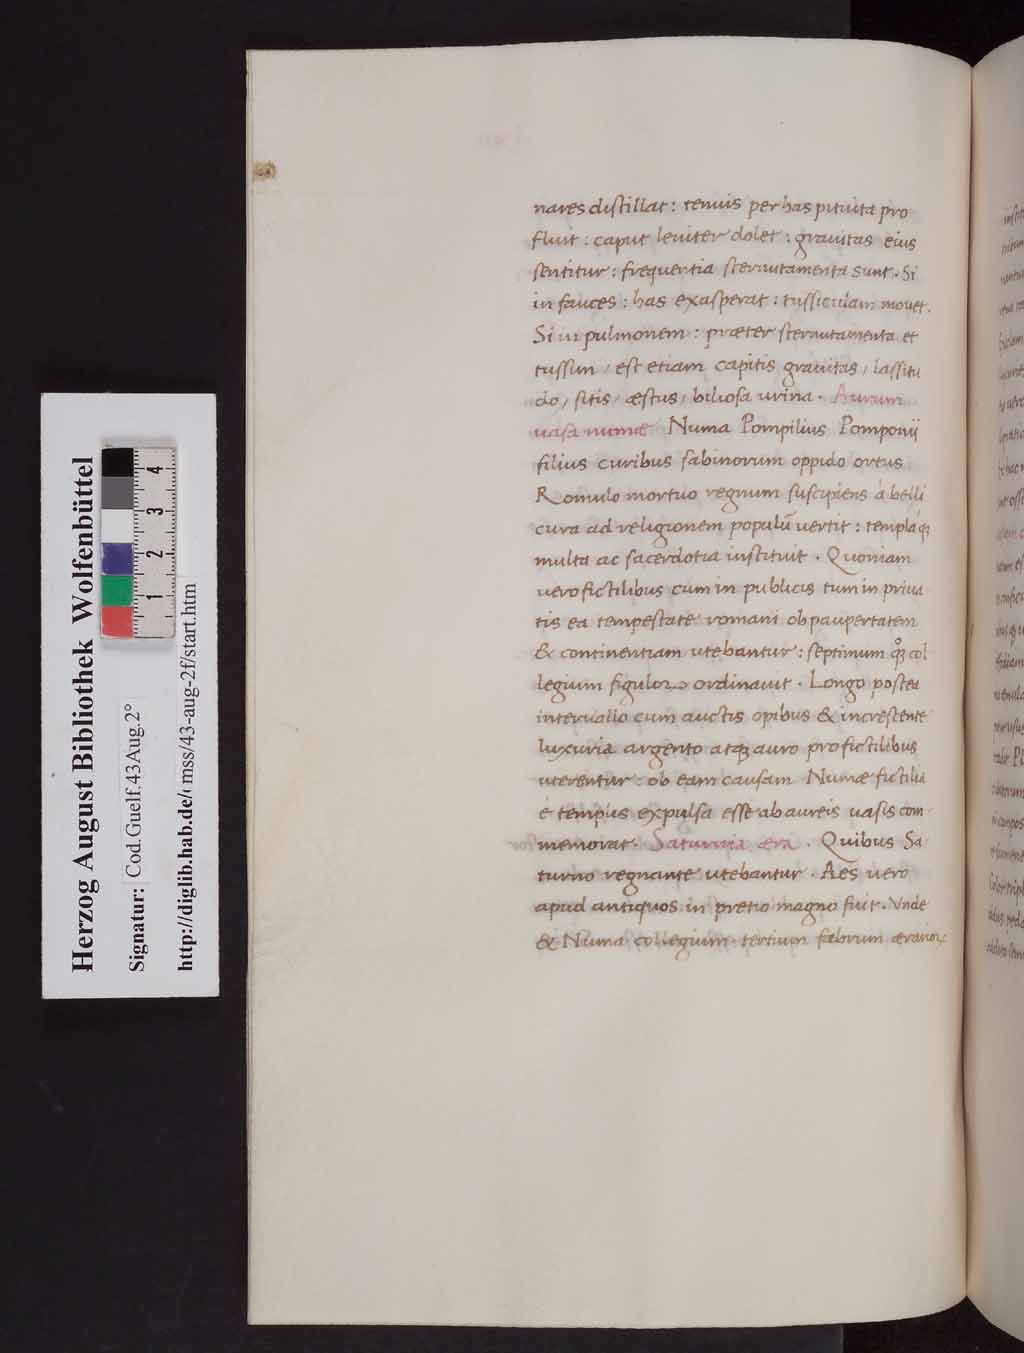 nares distillat : tenuis per has pituita pro
fluit : caput leuiter dolet : grauitas eius
sentitur : frequentia sternutamenta sunt . Si
in fauces : has exasperat : tussiculam mouet .
Si in pulmonem : præter sternutamenta et
tussim / est etiam capitis grauitas / lassitu
do / sitis / æstus / biliosa urina . Aurum
uasa numæ Numa Pompilius Pomponij
filius curibus sabinorum oppido ortus
Romulo mortuo regnum suscipiens á belli
cura ad religionem populū uertit : templáqꝫ
multa ac sacerdotia instituit . Quoniam
uero fictilibus cum in publicis tum in priua
tis ea tempestate romani ob paupertatem
& continentiam utebantur : septimum qꝫ col
legium figuloꝝ ordinauit . Longo postea
interuallo cum auctis opibus & increscente
luxuria argento atqꝫ auro pro fictilibus
uterentur : ob eam causam Numæ fictilia
é templis expulsa esse ab aureis uasis com
memorat . Saturnia æra . Quibus Sa
turno regnante utebantur . Aes uero
apud antiquos in pretio magno fuit . Vnde
& Numa collegium tertium fabrum ærarioꝝ
Herzog August Bibliothek Wolfenbüttel
Signatur: Cod. Guelf. 43 Aug. 2°
http://diglib.hab.de/mss/43-aug-2f/start.htm
1 2 3 4